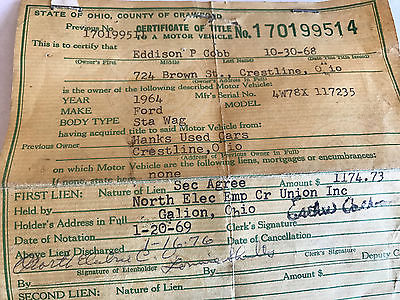 STATE OF OHIO, COUNTY OF CRAWFORD
Previous No. 170199514 CERTIFICATE OF TITLE No. 170199514
TO A MOTOR VEHICLE
This is to certify that Eddison P Cobb 10-30-68
(Owner's First) Middle Last Name) (Date Title Issued)
724 Brown St., Crestline, O,io
(Owner's Address in Full)
is the owner of the following described Motor Vehicle:
YEAR 1964 Mfr's Serial No. 4W78X 117235
MAKE Ford MODEL
BODY TYPE Sta Wag
having acquired title to said Motor Vehicle from:
Previous Owner Hanks Used Cars
Crestline, O io
(Address of Previous Owner in Full)
on which Motor Vehicle are the following liens, mortgages or encumbrances:
If none, state here none
FIRST LIEN: Nature of Lien Sec Agree Amount $ 1174.73
Held by North Elec Emp Cr Union Inc
Holder's Address in Full Galion, Ohio
Date of Notation 1-20-69 Clerk's Signature
Above Lien Discharged 1-16-76 Date of Cancellation
Signature of Lienholder Clerk's Signature Deputy C
SECOND LIEN: Nature of Lien Amount $